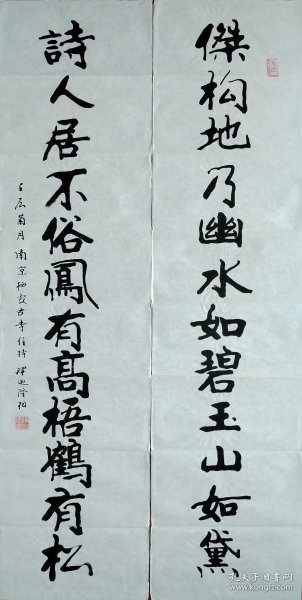 傑构地乃幽水如碧玉山如黛
詩人居不俗鳳有高梧鶴有松
壬辰菊月南京栖霞古寺住持釋隆相
孔夫子旧书网